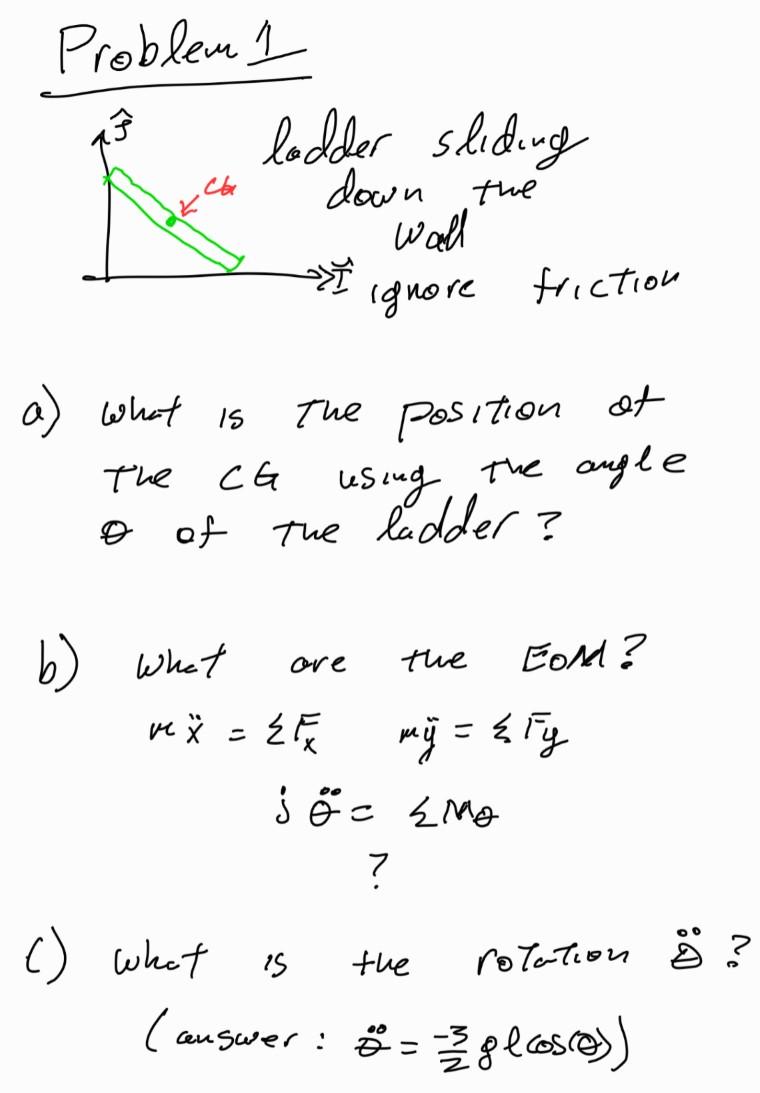 Problem 1
ĵ
CG
ladder sliding
down the
wall
Î
ignore friction
a) What is the position of
the CG using the angle
θ of the ladder?
b) What are the EOM?
mẍ = ΣFx mÿ = ΣFy
j θ̈ = ΣMθ
?
c) What is the rotation θ̈?
(answer: θ̈ = -3/2 g l cos(θ))